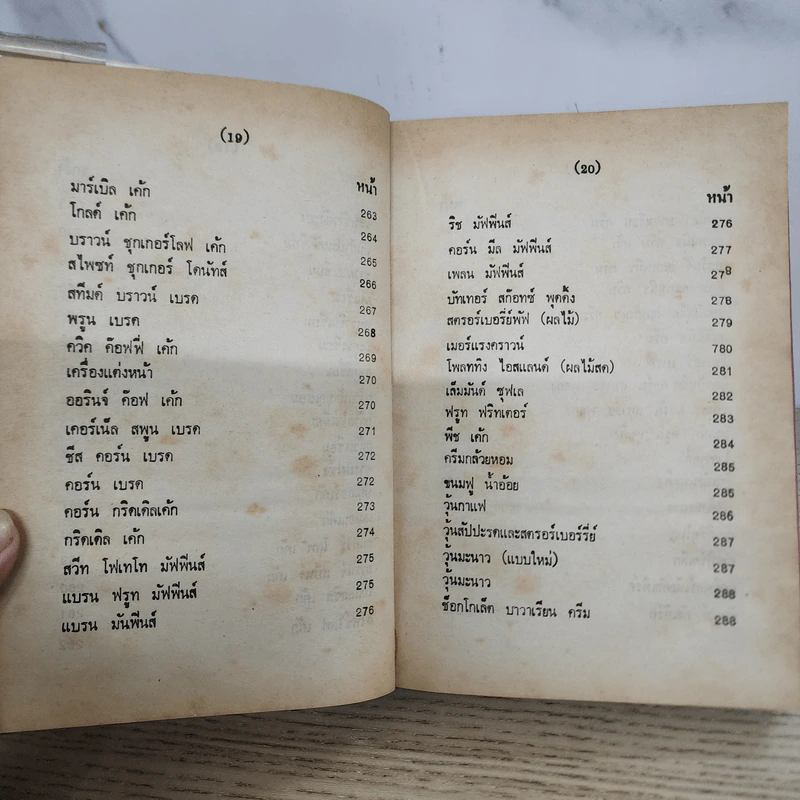 (19)
หน้า
มาร์เบิล เค้ก 263
โกลด์ เค้ก 264
บราวน์ ชุกเกอร์โลฟ เค้ก 265
สไพซท์ ชุกเกอร์ โดนัทส์ 266
สทีมด์ บราวน์ เบรด 267
พรูน เบรด 268
ควิค ค๊อฟฟี่ เค้ก 269
เครื่องแต่งหน้า 270
ออรินจ์ ค๊อฟ เค้ก 270
เคอร์เน็ล สพูน เบรด 271
ชีส คอร์น เบรด 272
คอร์น เบรด 272
คอร์น กริดเดิลเค้ก 273
กริดเดิล เค้ก 274
สวีท โฟเทโท มัฟพีนส์ 275
แบรน ฟรูท มัฟพีนส์ 275
แบรน มันพีนส์ 276
(20)
หน้า
ริช มัฟพีนส์ 276
คอร์น มีล มัฟพีนส์ 277
เพลน มัฟพีนส์ 278
บัทเทอร์ สก๊อทซ์ พุดดิ้ง 278
สตรอร์เบอรี่ย์พัฟ (ผลไม้) 279
เมอร์แรงคราวน์ 780
โพลททิง ไอสแลนด์ (ผลไม้สด) 281
เล็มมันด์ ซุฟเล 282
ฟรูท ฟริทเตอร์ 283
พีช เค้ก 284
ครีมกล้วยหอม 285
ขนมฟู น้ำอ้อย 285
วุ้นกาแฟ 286
วุ้นสัปปะรดและสตรอร์เบอร์รี่ย์ 287
วุ้นมะนาว (แบบใหม่) 287
วุ้นมะนาว 288
ช็อกโกเล็ต บาวาเรียน ครีม 288